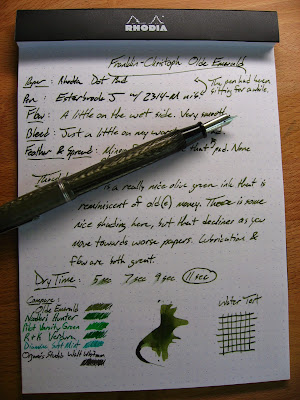 RHODIA
Franklin-Christoph Olde Emerald
Paper: Rhodia Dot Pad
The pen had been
sitting for a while.
Pen: Esterbrook J w/ 2314-M nib.
Flow: A little on the wet side. Very smooth.
Bleed: Just a little on my worst pad.
Feather & Spread: on that pad. None
Thoughts
is a really nice olive green ink that is
reminiscent of old(e) money. There is some
nice shading here, but that declines as you
move towards worse papers. Lubrication &
flow are both great.
Dry Time: 5 sec 7 sec 9 sec 11 sec
Compare:
Olde Emerald
Noodler's Hunter
Nbt Varsity Green
R+K Verdura
Diamine Soft Mint
Organic Studio Walt Whitman
Water Test